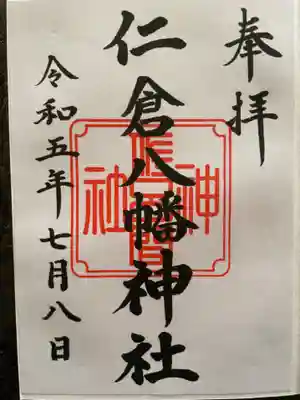 奉拝
仁倉八幡神社
令和五年七月八日